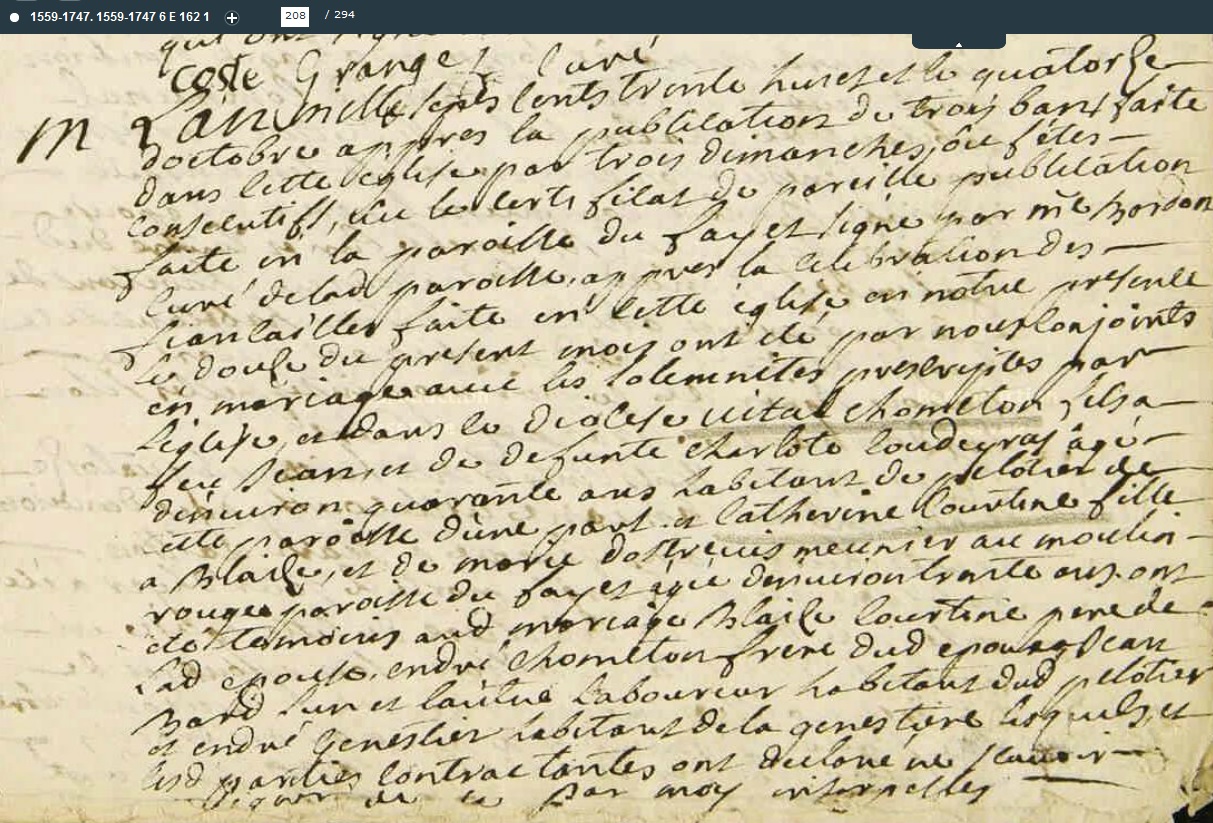 1559-1747. 1559-1747 6 E 162 1
208 / 294
qui ont signé
coste Granget Curé
M L'an mille sept cents trente huict et le quatorze
doctobre appres la publication de trois bans faite
dans cette eglise par trois dimanches, ou fêtes
consecutifs, veu le certificat de pareille publication
faite en la paroisse du fay et signé par mre Bordon
curé delad paroisse, appres la celebration des
fiancailles faite en cette eglise en notre presence
le douse du present mois ont été par nous conjoints
en mariage avec les solemnités prescriptes par
l'eglise, et dans le Diocese vital chometon fils a
feu Jean, et de defunte charlote coudeyras âgé
d'environ quarante ans habitant de pelotier de
cette paroisse d'une part. et Catherine Courtine fille
a Blaise, et de marie meunier au moulin
rouge paroisse du fay et agée denviron trente ans. ont
été temoins aud mariage Blaise Courtine pere de
lad epouse, endré Chometon frere dud epoux Jean
Bard laboureur habitant dud pelotier
et endré Genestier habitant de la genestiere lesquels, et
lesd parties contractantes ont declaré ne scavoir
signer de ce par moy interpellés